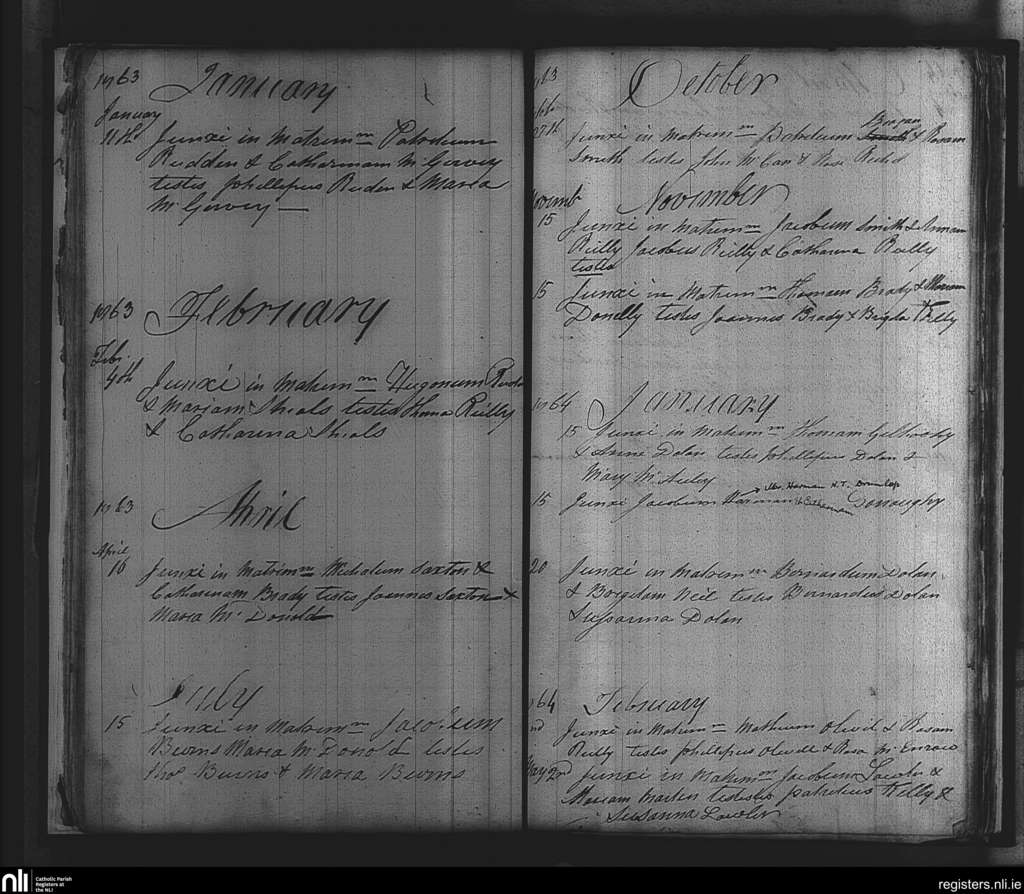 1863 January
January
11th Junxi in Matrimm Patricium
Rudden & Catharinam McGervey
testes Phillipus Ruden & Maria
McGervey
1863 February
Feb.
4th Junxi in Matrimm Hugonum
& Mariam Shials testes Thoma Reilly
& Catharina Shials
1863 April
April
16 Junxi in Matrimm Michalum Saxton &
Catharinam Brady testes Joannes Saxton &
Maria McDonald
July
15 Junxi in Matrimm Jacobum
Burns Maria McDonold testes
Thos Burns & Maria Burns
63 October
27th Junxi in Matrimm Patricium Smith Bregan & Rosam
Smith testes John McCan & Rose
Novemb November
15 Junxi in Matrimm Jacobum Smith & Annam
Reilly Jacobus Reilly & Catharina Reilly
testes
15 Junxi in Matrimm Thomam Brady & Mariam
Donelly testes Joannes Brady & Brigda Kelly
1864 January
15 Junxi in Matrimm Thomam
& Anne Dolan testes Phillipus Dolan &
Mary McAuley
Mrs. Harman N.T. Brunlop
15 Junxi Jacobum Harman & Catharinam Donoughy
20 Junxi in Matrimm Bernardum Dolan
& Borgidam Neil testes Bernardus Dolan
& Sussanna Dolan
64 February
2nd Junxi in Matrimm Mathium Olwill & Rosam
Reilly testes Phillipus Olwell & Rosa McEnroe
May 2nd Junxi in Matrimm Jacobum Lawler &
Mariam Martin testes Patritius Kelly &
Susanna Lawler
nli Catholic Parish
Registers at
the NLI
registers.nli.ie